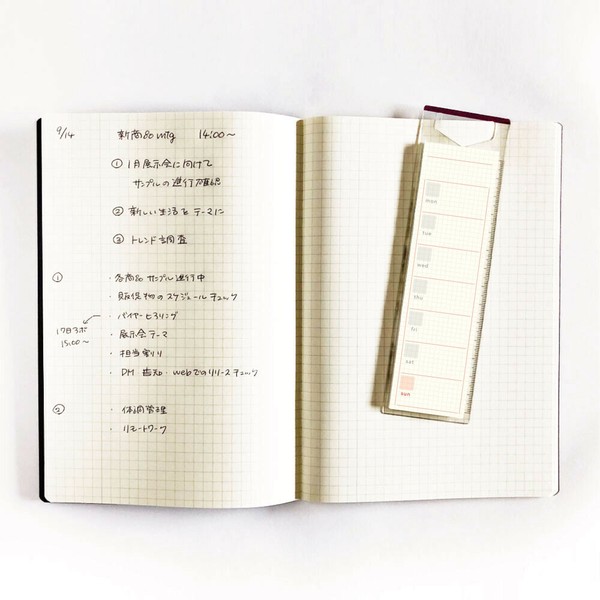 9/14 新商品mtg 14:00~
① 1月展示会に向けて
サンプルの進行確認
② 新しい生活をテーマに
③ トレンド調査
① ・各商品サンプル進行中
・販促物のスケジュールチェック
・バイヤーヒアリング
17日アポ
15:00~
・展示会テーマ
・担当割り
・DM 告知・webでのリリースチェック
② ・体調管理
・リモートワーク
mon
tue
wed
thu
fri
sat
sun